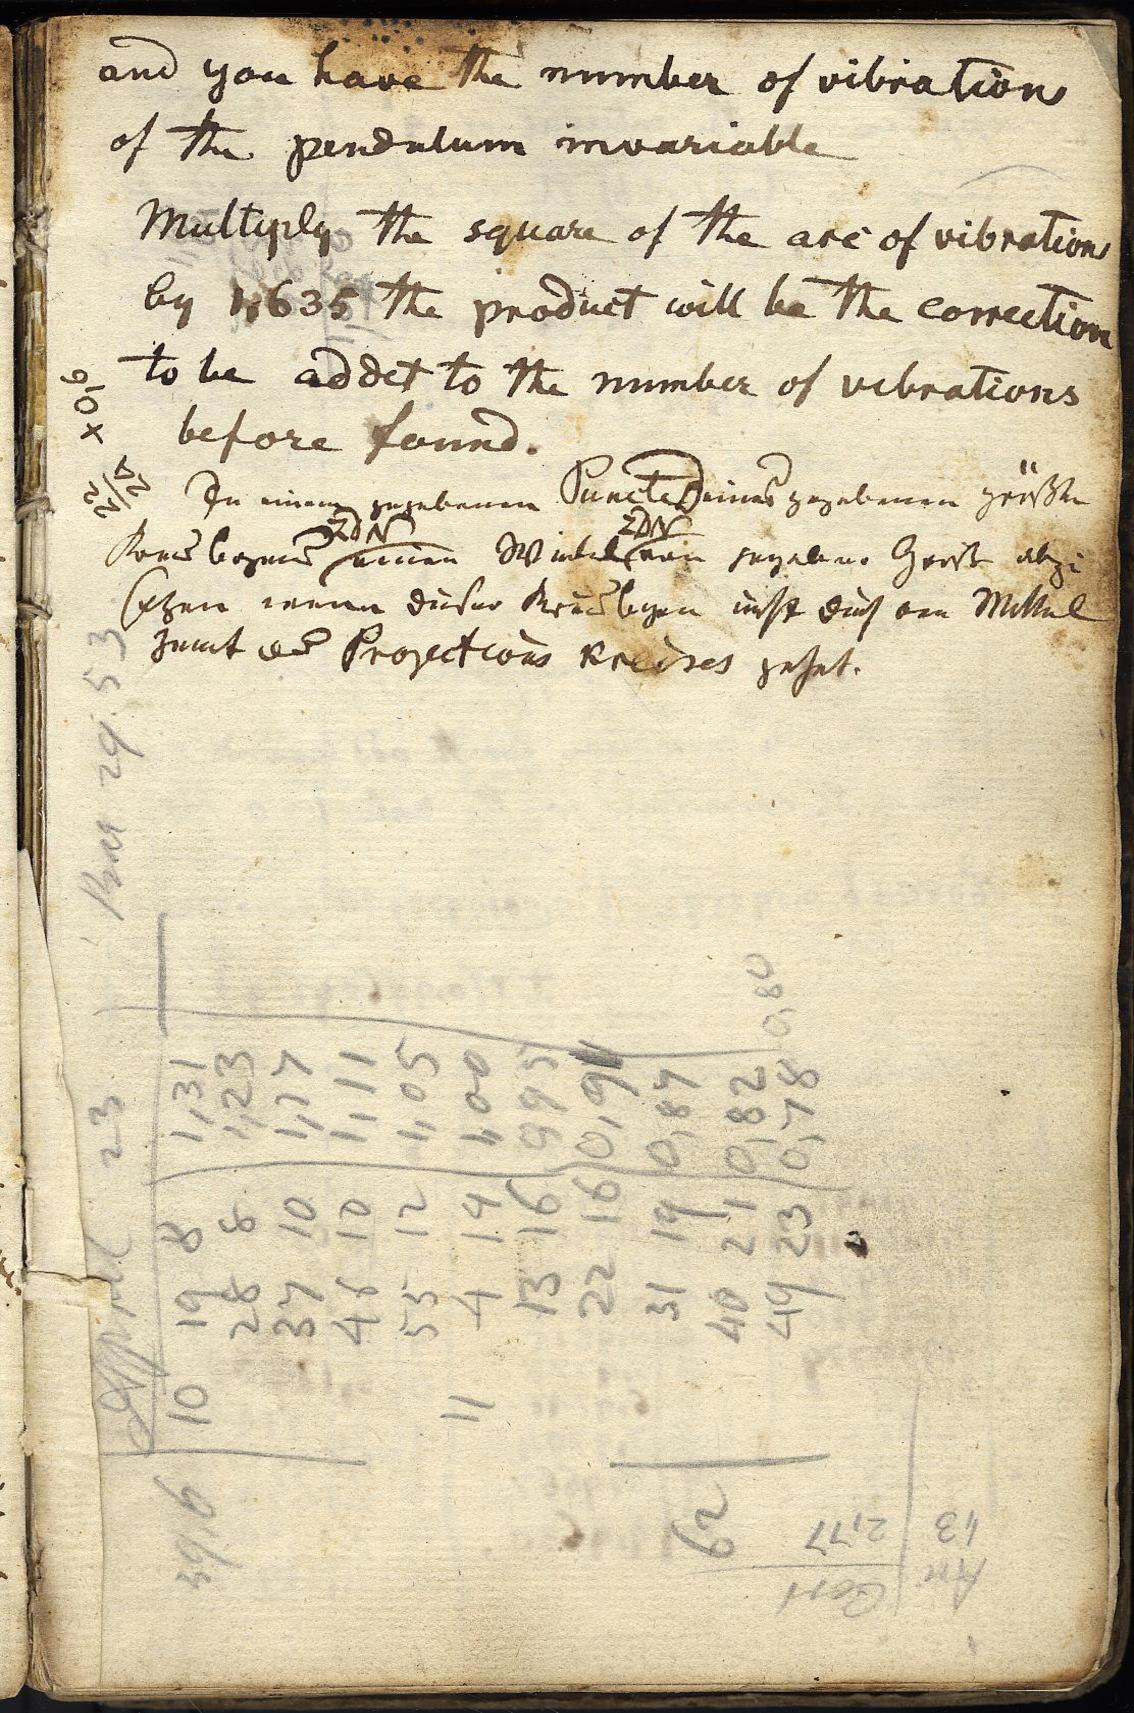 and you have the number of vibrations
of the pendulum invariable
Multiply the square of the arc of vibrations
by 1,635 the product will be the correction
to be addet to the number of vibrations
before found.
In einem gegebenen Puncte D eines gegebenen größten
Kreisbogens ZDN einen Winkel ZDN von gegebener Größe
wenn dieser Kreisbogen nicht durch den Mittel
punct des Projections Kreises gehet.
Bar 29.53
Appril 23
10 19 8 1,31
28 8 1,23
37 10 1,17
46 10 1,11
55 12 1,05
11 4 14 1,00
13 16 0,95
22 16 0,91
31 19 0,87
40 21 0,82 0,80
49 23 0,78
59,6
62
2,77
43